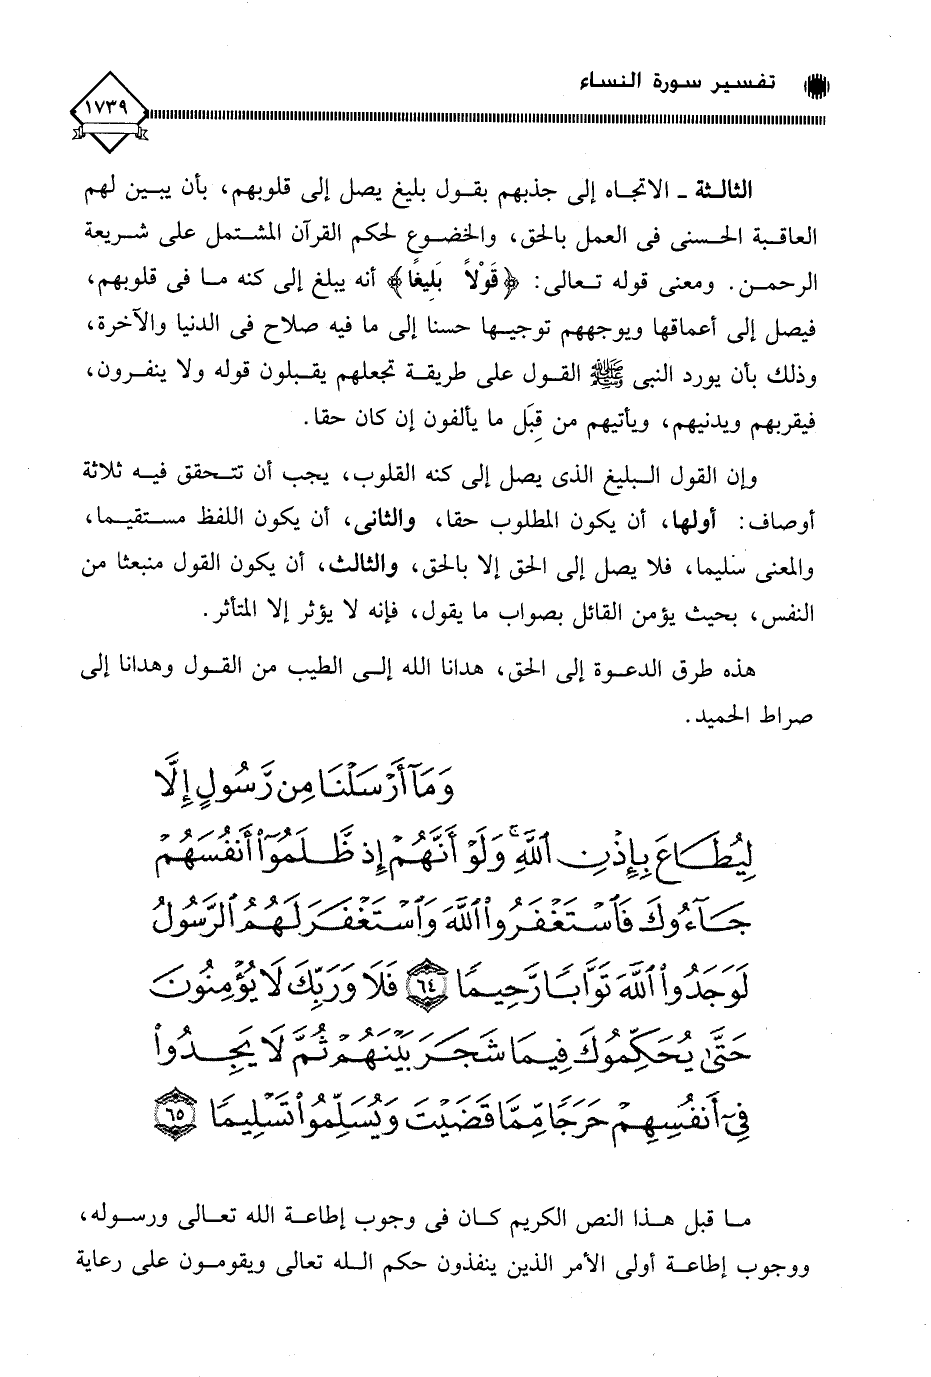 تفسير سورة النساء
١٧٣٩
الثالثة ـ الاتجاه إلى جذبهم بقول بليغ يصل إلى قلوبهم، بأن يبين لهم
العاقبة الحسنى فى العمل بالحق، والخضوع لحكم القرآن المشتمل على شريعة
الرحمن. ومعنى قوله تعالى: ﴿قَوْلاً بَلِيغًا﴾ أنه يبلغ إلى كنه ما فى قلوبهم،
فيصل إلى أعماقها ويوجههم توجيها حسنا إلى ما فيه صلاح فى الدنيا والآخرة،
وذلك بأن يورد النبى ﷺ القول على طريقة تجعلهم يقبلون قوله ولا ينفرون،
فيقربهم ويدنيهم، ويأتيهم من قِبَل ما يألفون إن كان حقا.
وإن القول البليغ الذى يصل إلى كنه القلوب، يجب أن تتحقق فيه ثلاثة
أوصاف: أولها، أن يكون المطلوب حقا، والثانى، أن يكون اللفظ مستقيما،
والمعنى سليما، فلا يصل إلى الحق إلا بالحق، والثالث، أن يكون القول منبعثا من
النفس، بحيث يؤمن القائل بصواب ما يقول، فإنه لا يؤثر إلا المتأثر.
هذه طرق الدعوة إلى الحق، هدانا الله إلى الطيب من القول وهدانا إلى
صراط الحميد.
وَمَآ أَرْسَلْنَا مِن رَّسُولٍ إِلَّا
لِيُطَاعَ بِإِذْنِ ٱللَّهِ ۚ وَلَوْ أَنَّهُمْ إِذ ظَّلَمُوٓا۟ أَنفُسَهُمْ
جَآءُوكَ فَٱسْتَغْفَرُوا۟ ٱللَّهَ وَٱسْتَغْفَرَ لَهُمُ ٱلرَّسُولُ
لَوَجَدُوا۟ ٱللَّهَ تَوَّابًا رَّحِيمًا ٦٤ فَلَا وَرَبِّكَ لَا يُؤْمِنُونَ
حَتَّىٰ يُحَكِّمُوكَ فِيمَا شَجَرَ بَيْنَهُمْ ثُمَّ لَا يَجِدُوا۟
فِىٓ أَنفُسِهِمْ حَرَجًا مِّمَّا قَضَيْتَ وَيُسَلِّمُوا۟ تَسْلِيمًا ٦٥
ما قبل هذا النص الكريم كان فى وجوب إطاعة الله تعالى ورسوله،
ووجوب إطاعة أولى الأمر الذين ينفذون حكم الله تعالى ويقومون على رعاية